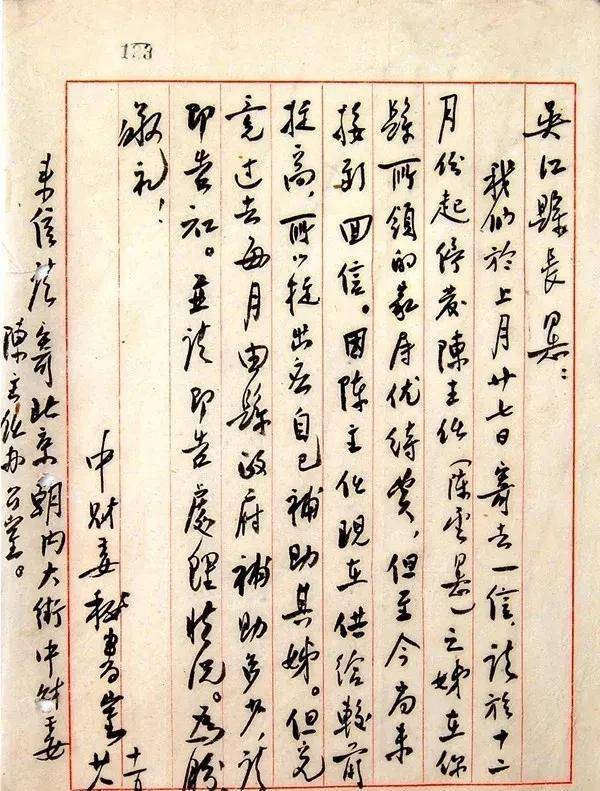 133
吴江縣長墨：
我們於上月廿七日寄去一信，請於十二
月份起停發陳主任（陳雲墨）之姊在你
縣所領的家屬优待費，但至今尚未
接到回信。因陈主任現在供给較前
提高，所以提出应自己補助其姊。但究
竟过去每月由縣政府補助多少，請
即告知。並請即告處理情况。為盼
敬礼！
中财委秘書室 廿
十一月
来信請寄北京朝内大街中财委
陳主任办公室。